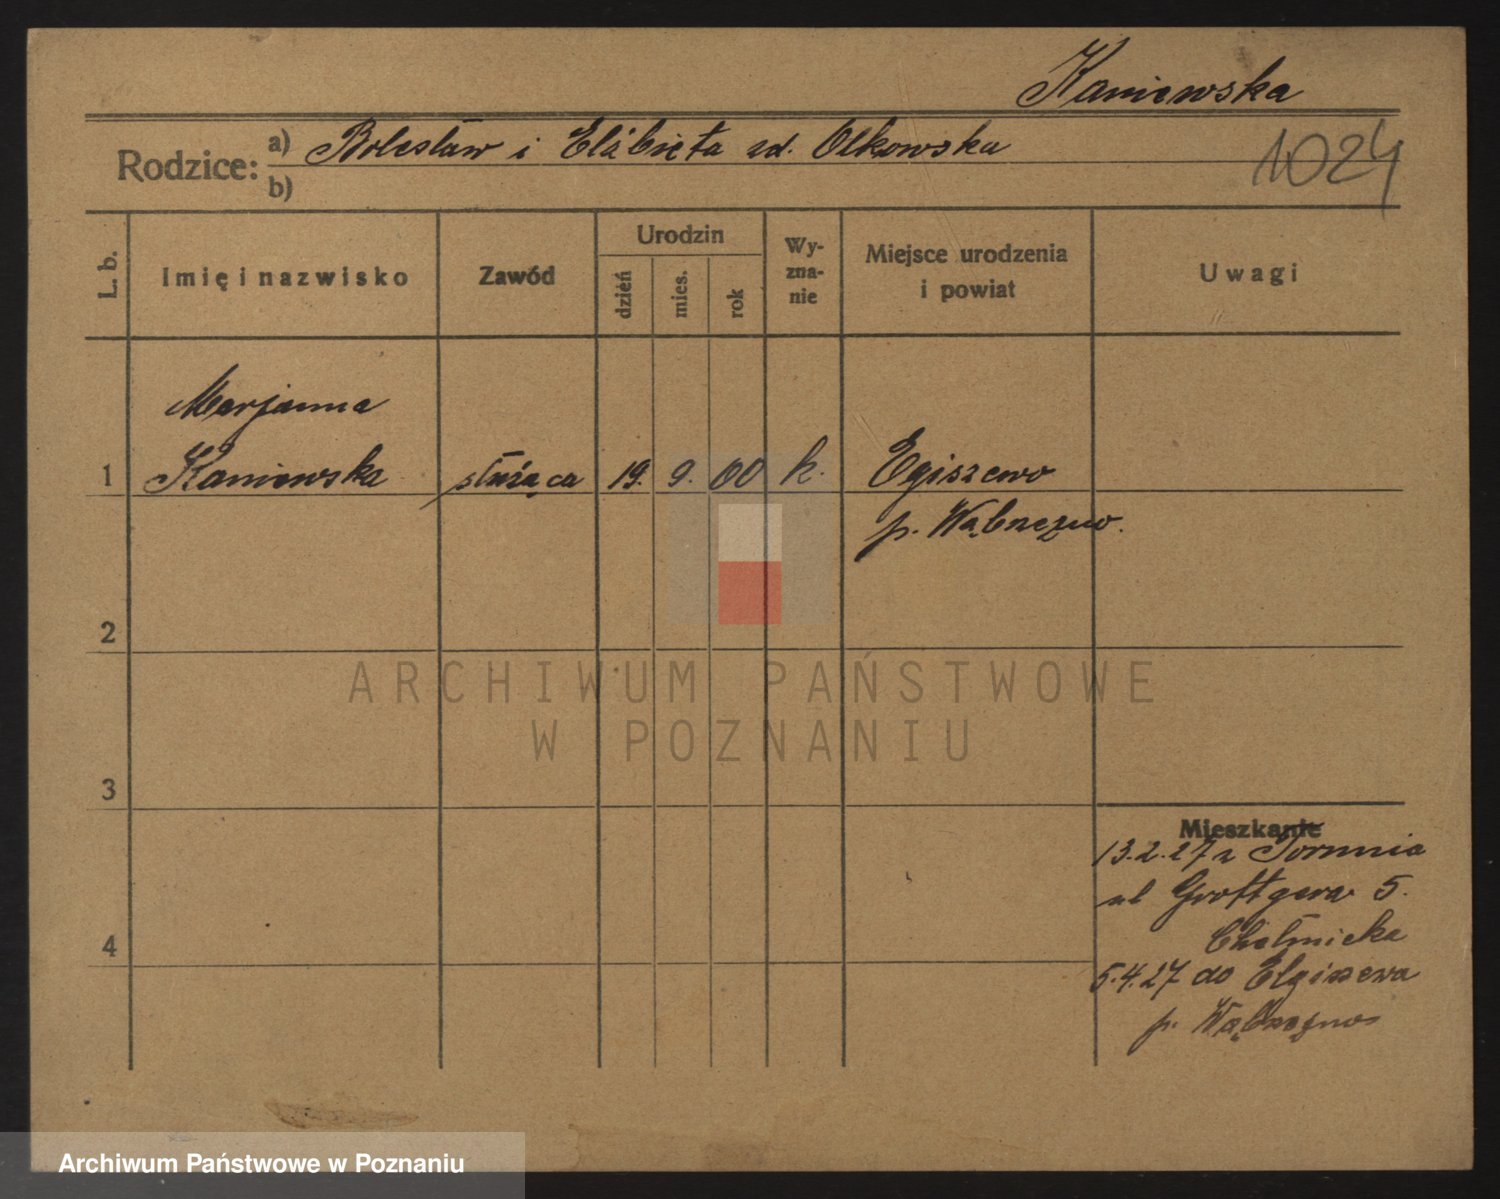 Kaniewska
1024
Rodzice: a) Bolesław i Elżbieta zd. Olkowska
b)
L. b.
Imię i nazwisko
Zawód
Urodzin
dzień
mies.
rok
Wy-
zna-
nie
Miejsce urodzenia
i powiat
Uwagi
Marjanna
1 Kaniewska służąca 19. 9. 00 k. Egiszewo
p. Wąbrzeźno.
2
ARCHIWUM PAŃSTWOWE
W POZNANIU
3
Mieszkanie
13.2.27 z Torunia
ul Grottgera 5.
4
Chełmicka
5.4.27 do Elgiszewa
p. Wąbrzeźno
Archiwum Państwowe w Poznaniu